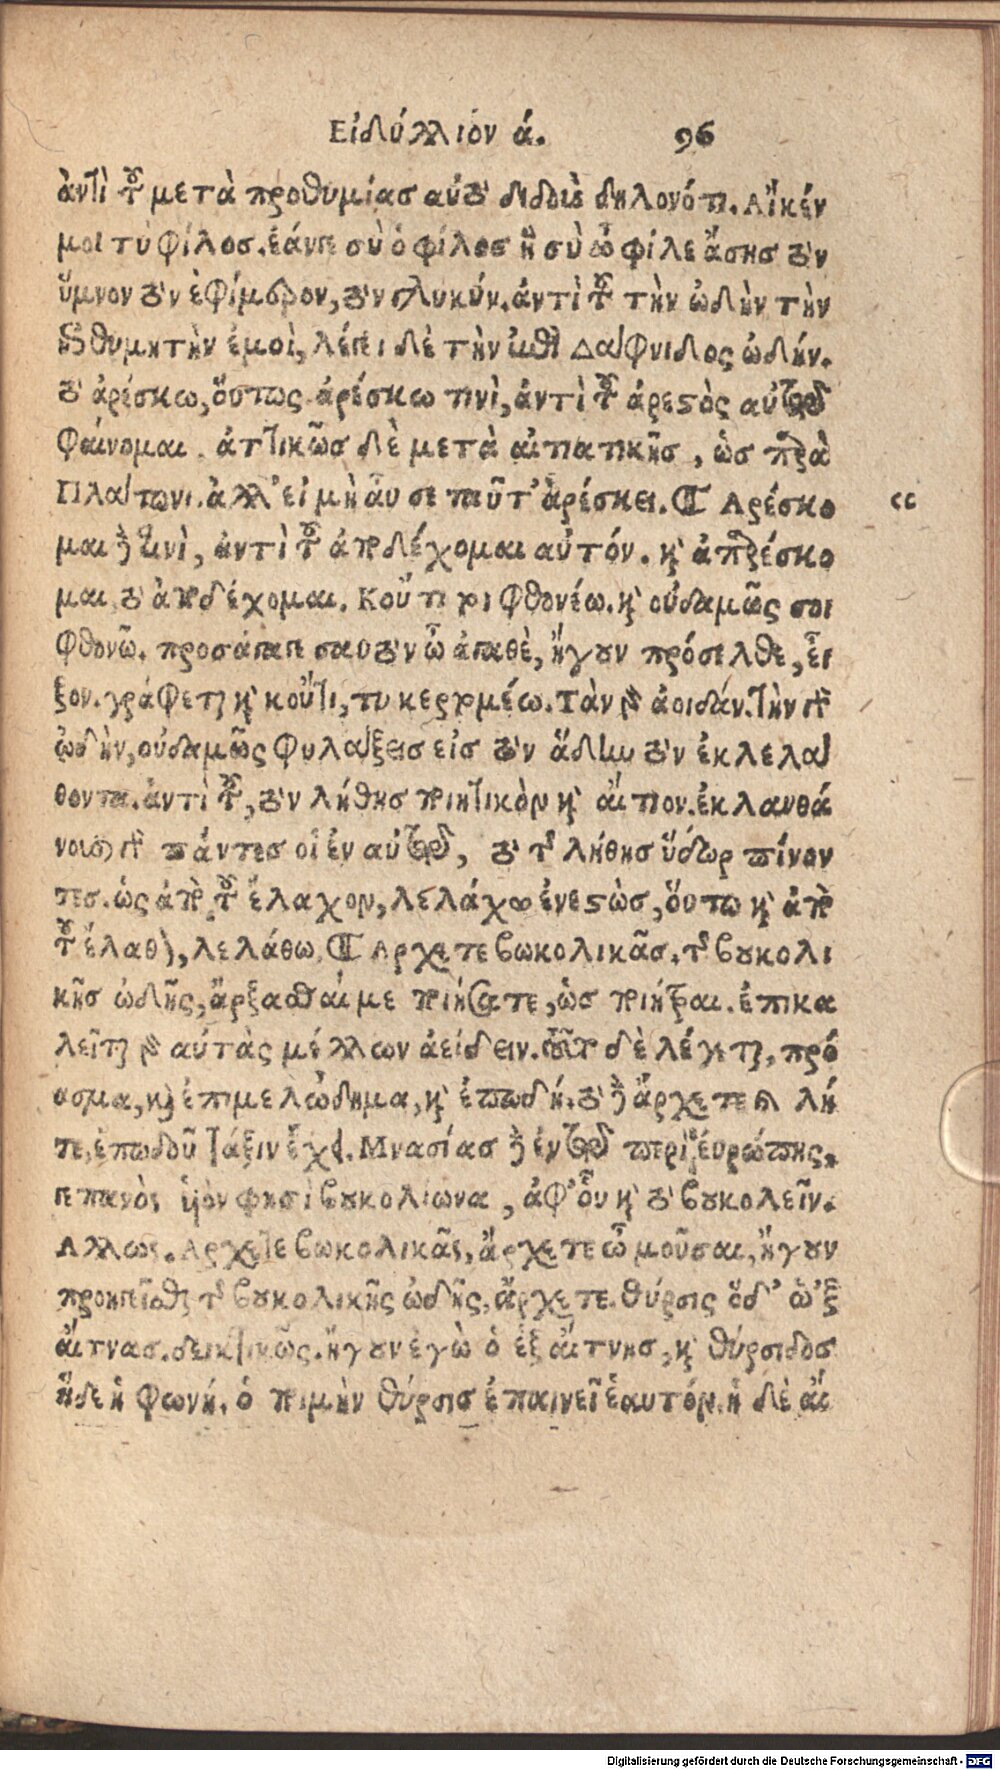 Εἰδύλλιον ά. 96
ἀντὶ τοῦ μετὰ προθυμίας αὐτὸ διδοὺς δηλονότι. Αἴκέν
μοι τὺ φίλος. ἐάνπερ σὺ ὁ φίλος ἢ σὺ ὦ φίλε ἄσης τὸν
ὕμνον τὸν ἐφίμερον, τὸν γλυκύν. ἀντὶ τοῦ τὴν ὠδὴν τὴν
ἐπιθυμητὴν ἐμοὶ, λέγει δὲ τὴν κατὰ Δάφνιδος ὠδήν.
τὸ ἀρέσκω, ὅυτως ἀρέσκω τινὶ, ἀντὶ τοῦ ἀρεστὸς αὐτῷ
φαίνομαι. ἀττικῶς δὲ μετὰ αἰτιατικῆς, ὡς παρὰ
Πλάτωνι. ἀλλ' εἰ μὴ ἄυ σε ταῦτ' ἀρέσκει. ¶ Αρέσκο cc
μαι δὲ τινὶ, ἀντὶ τοῦ ἀποδέχομαι αὐτόν. καὶ ἀπαρέσκο
μαι, τὸ ἀποδέχομαι. Κοὔ τι τοι φθονέω. καὶ οὐδαμῶς σοι
φθονῶ. προσάγαγε σαυτὸν ὦ ἀγαθὲ, ἤγουν πρόσελθε, εἶ
ξον. γράφεται καὶ κοὔτι, τυ κερτομέω. Τὰν γὰρ ἀοιδάν. τὴν γὰρ
ὠδὴν, οὐδαμῶς φυλάξεις εἰς τὸν ἅδην τὸν ἐκλελά
θοντα. ἀντὶ τοῦ, τὸν λήθης ποιητικὸν καὶ αἴτιον. ἐκλανθά
νουσι γὰρ πάντες οἱ ἐν αὐτῷ, τὸ τῆς λήθης ὕδωρ πίνον
τες. ὡς ἀπὸ τοῦ ἔλαχον, λελάχω ἐνεστὼς, ὅυτω καὶ ἀπὸ
τοῦ ἔλαθον, λελάθω. ¶ Αρχετε βωκολικᾶς. τῆς βουκολι
κῆς ὠδῆς, ἄρξασθαί με ποιήσατε, ὡς ποιήτραι. ἐπικα
λεῖται γὰρ αὐτὰς μέλλων ἀείδειν. τοῦτο δὲ λέγεται, πρό
ασμα, καὶ ἐπιμελῴδημα, καὶ ἐπωδή. τὸ δὲ ἄρχετε ἢ λή
γετε, ἐπωδοῦ τάξιν ἔχει. Μνασίας δὲ ἐν τῷ περὶ εὐρώπης,
πανὸς ὑιόν φησὶ βουκολίωνα, ἀφ' οὗ καὶ τὸ βουκολεῖν.
Αλλως. Αρχετε βωκολικᾶς, ἄρχετε ὦ μοῦσαι, ἤγουν
προηγεῖσθε τῆς βουκολικῆς ὠδῆς, ἄρχετε. Θύρσις ὅδ' ὡ'ξ
αἴτνας. δεικτικῶς. ἤγουν ἐγὼ ὁ ἐξ αἴτνης, καὶ θύρσιδος
ἥδε ἡ φωνή. ὁ ποιμὴν θύρσις ἐπαινεῖ ἑαυτόν. ἡ δὲ αἴ
Digitalisierung gefördert durch die Deutsche Forschungsgemeinschaft - DFG